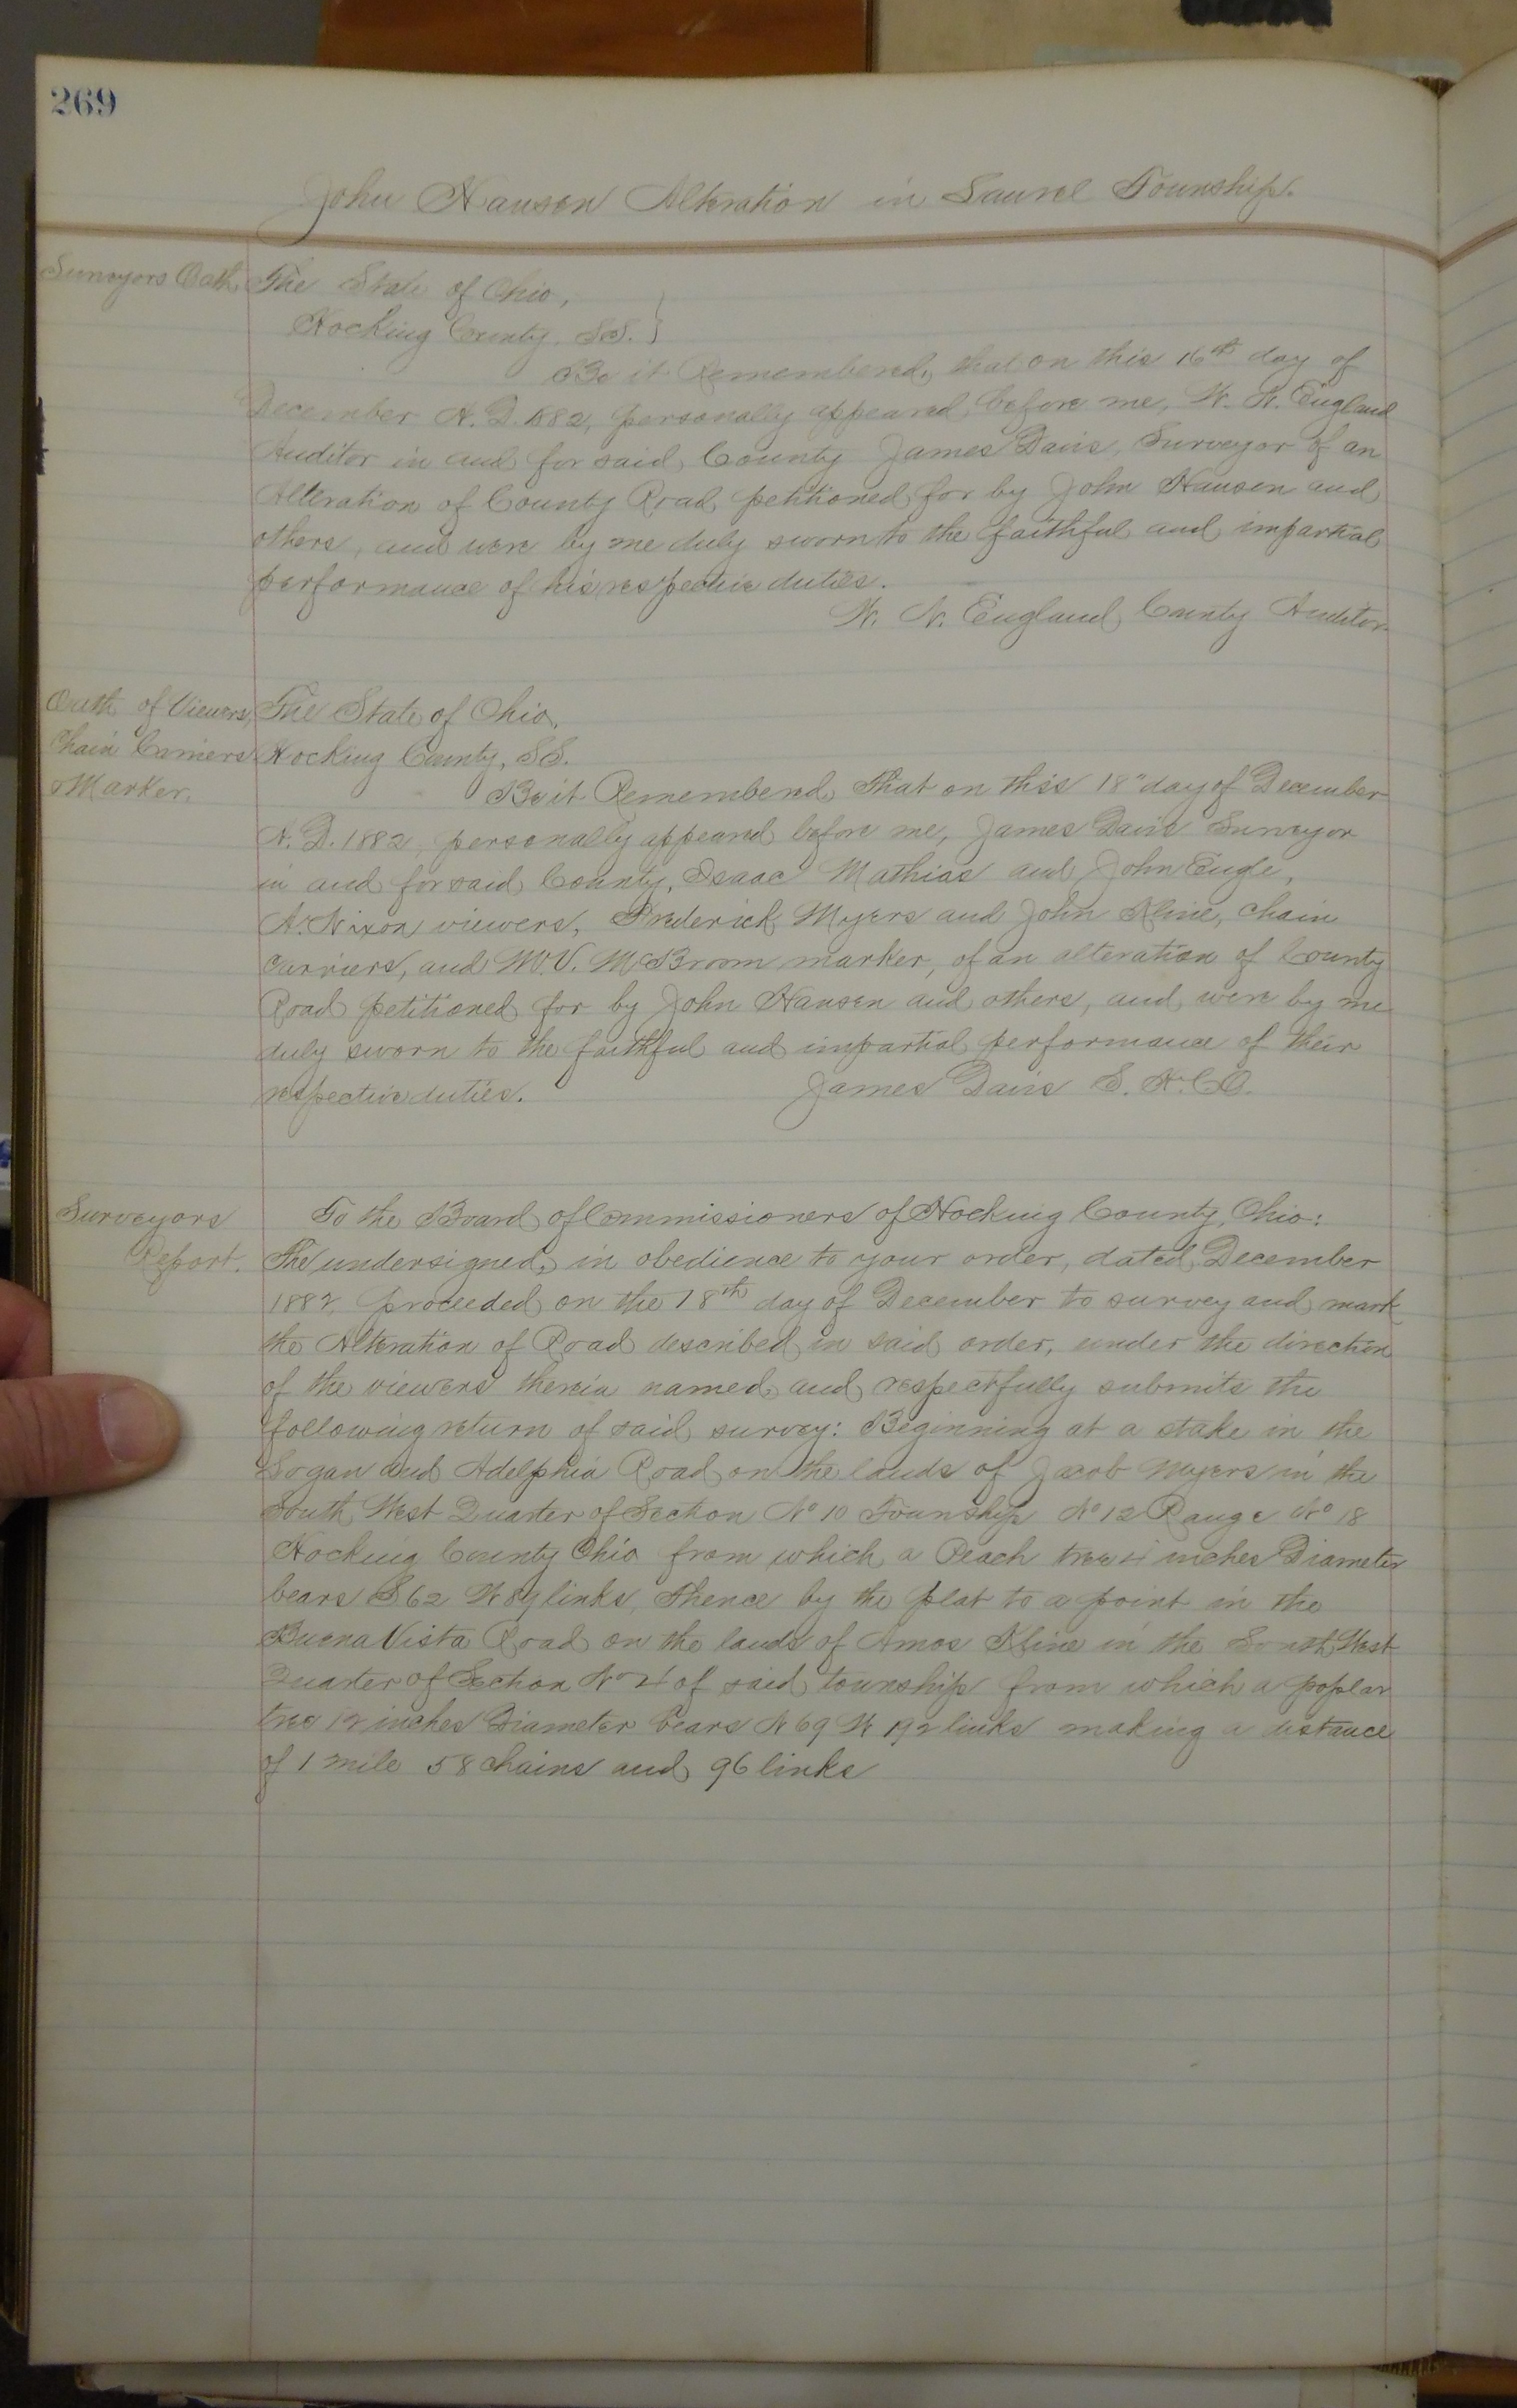 269
John Hansen Alteration in Laurel Township.
Surveyors Oath.
The State of Ohio,
Hocking County, SS. }
Be it Remembered, that on this 16th day of
December A. D. 1882, personally appeared, before me, W. W. England
Auditor in and for said County James Davis, Surveyor of an
Alteration of County Road petitioned for by John Hansen and
others, and were by me duly sworn to the faithful and impartial
performance of his respective duties.
W. W. England County Auditor.
Oath of Viewers,
Chain Carriers
& Marker.
The State of Ohio,
Hocking County, SS.
Be it Remembered, That on this 18" day of December
A. D. 1882, personally appeared before me, James Davis Surveyor
in and for said County, Isaac Mathias and John Engle,
A. Nixon viewers, Frederick Myers and John Kline, chain
carriers, and W. V. McBroom marker, of an alteration of County
Road petitioned for by John Hansen and others, and were by me
duly sworn to the faithful and impartial performance of their
respective duties.
James Davis S. H. C. O.
Surveyors
Report.
To the Board of Commissioners of Hocking County, Ohio:
The undersigned, in obedience to your order, dated, December
1882 proceeded on the 18th day of December to survey and mark
the Alteration of Road described in said order, under the direction
of the viewers therein named, and respectfully submits the
following return of said survey: Beginning at a stake in the
Logan and Adelphia Road on the lands of Jacob Myers in the
South West Quarter of Section No 10 Township No 12 Range No 18
Hocking County Ohio from which a Peach tree 4 inches Diameter
bears S 62 W 89 links, Thence by the plat to a point in the
Buena Vista Road on the lands of Amos Kline in the South West
Quarter of Section No 4 of said township from which a poplar
tree 12 inches Diameter bears N 69 W 192 links making a distance
of 1 mile 58 chains and 96 links